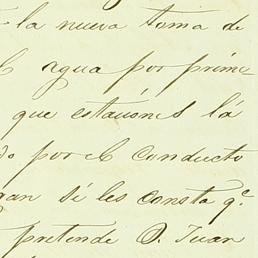 la nueva toma de
agua por prime
que estaiones la
por el conducto
gan si les consta q.e
pretende D. Juan